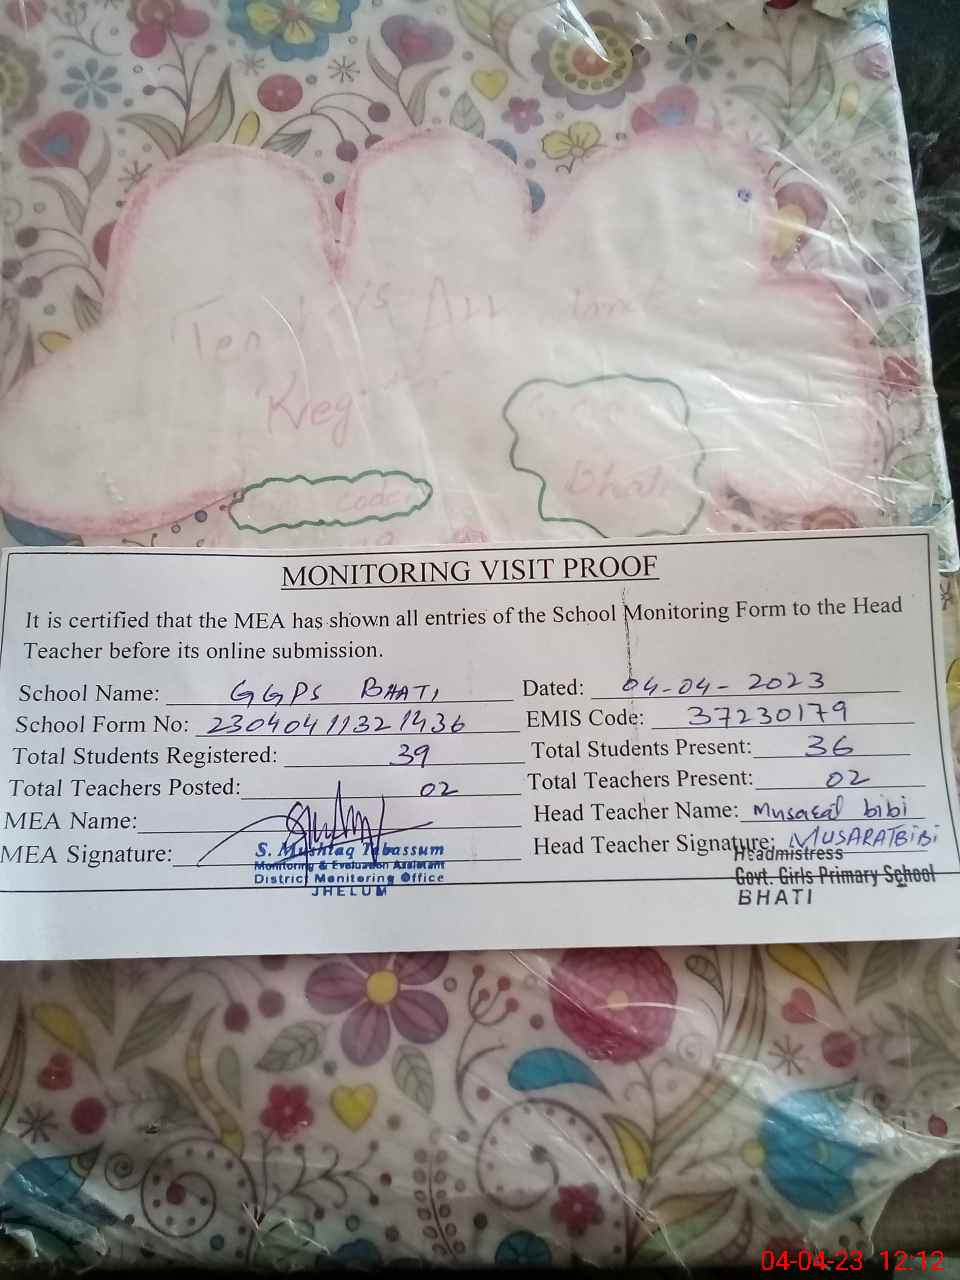 Is All
Kreg
Code
Bhati
MONITORING VISIT PROOF
It is certified that the MEA has shown all entries of the School Monitoring Form to the Head
Teacher before its online submission.
School Name: GGPS BHATI Dated: 04-04-2023
School Form No: 2304041132 1436 EMIS Code: 37230179
Total Students Registered: 39 Total Students Present: 36
Total Teachers Posted: 02 Total Teachers Present: 02
MEA Name: Head Teacher Name: Musarat bibi
MEA Signature: Head Teacher Signature: MUSARATBiBi
S. Mushtaq Tabassum
Monitoring & Evaluation Assistant
District Monitoring Office
JHELUM
Headmistress
Govt. Girls Primary School
BHATI
04-04-23 12:12